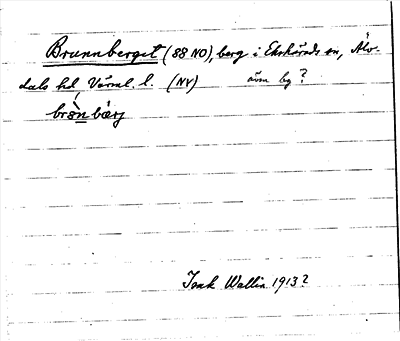 Brunnberget (88 NO), berg i Ekshärads sn, Älv-
dals hd, Värml. l. (NV) även by?
brònbærj
Jonk Wallin 1913?